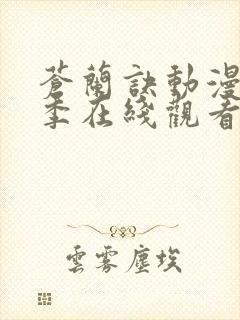 蒼蘭訣動漫
季在綫觀看
雲霧塵埃